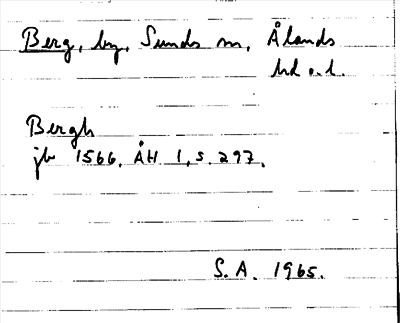 Berg, by, Sunds sn, Ålands
hd o. l.
Bergh
jb 1566. ÅH 1, s. 297.
S. A. 1965.